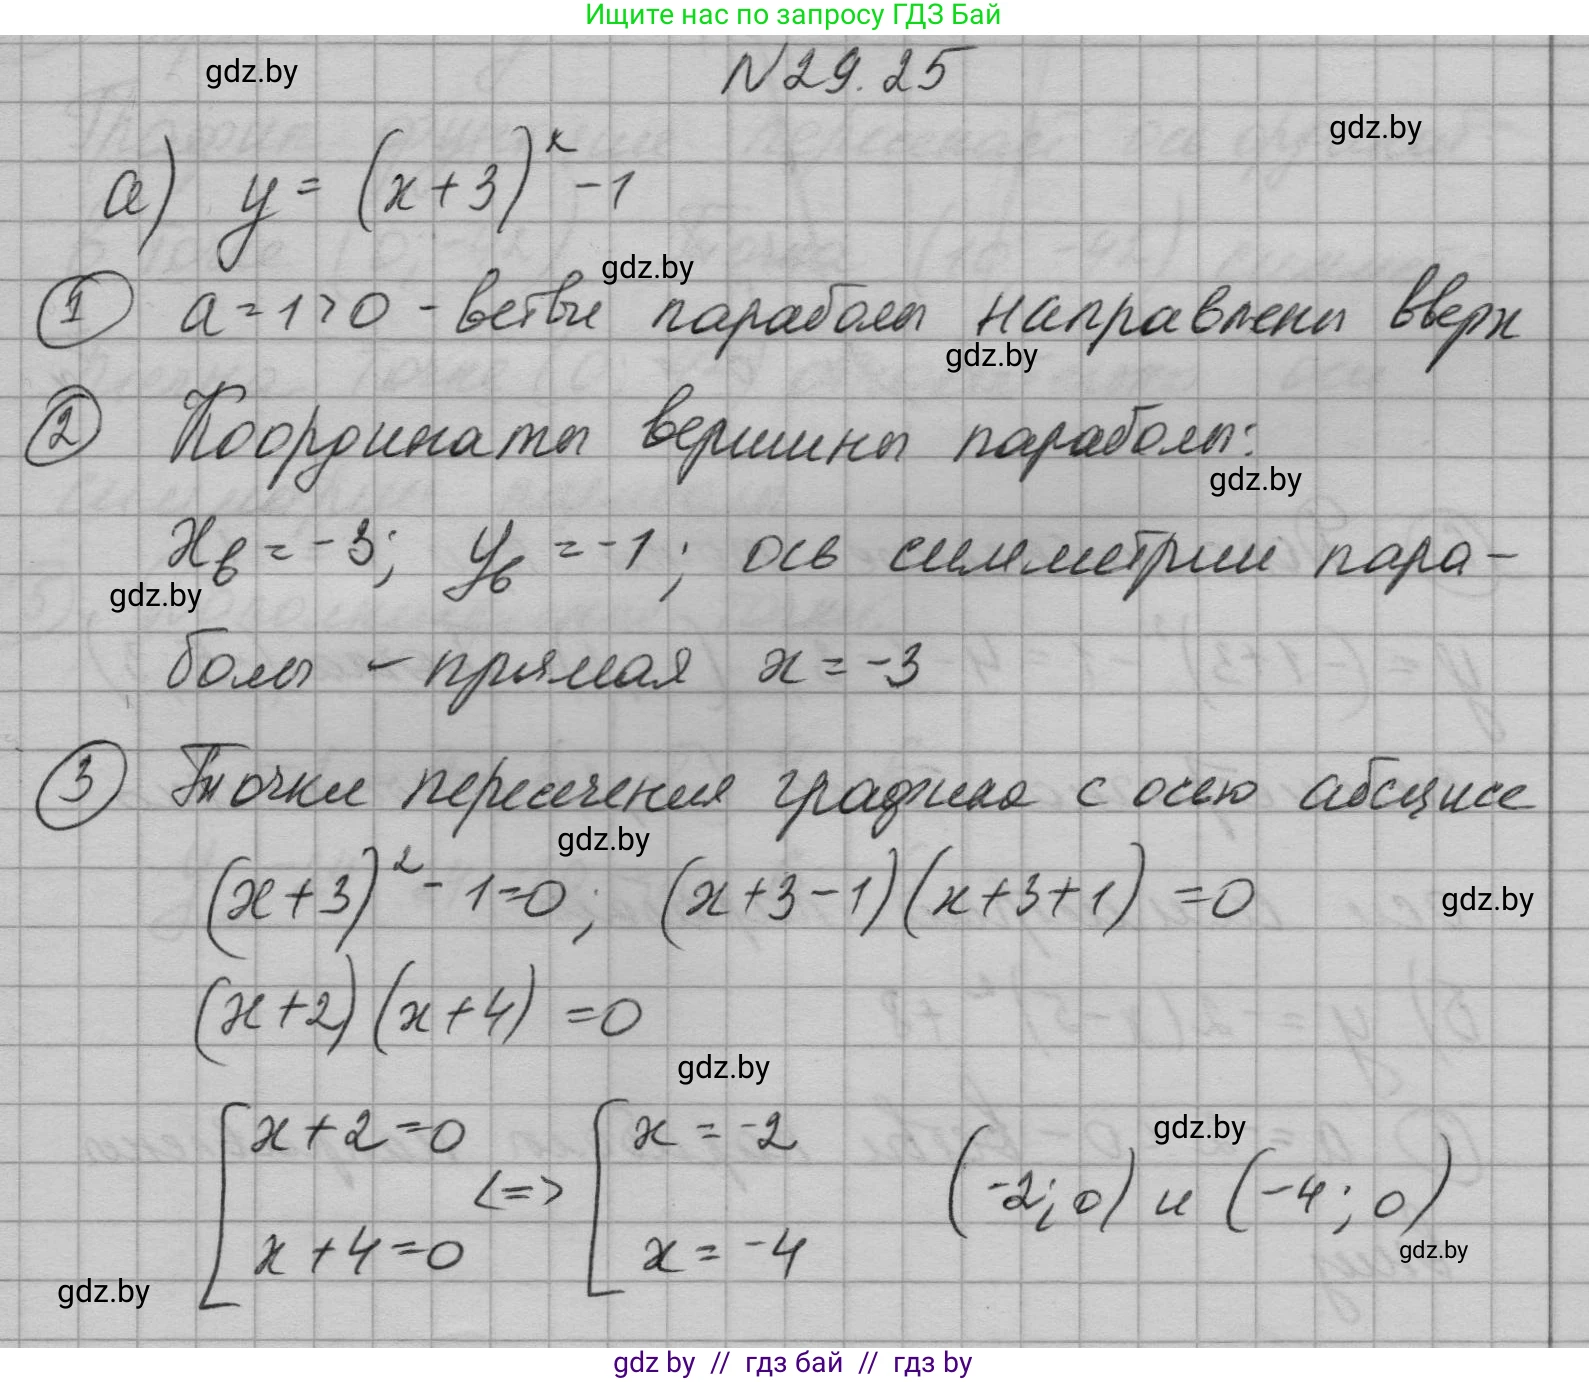 Ищите нас по запросу ГДЗ Бай
N 29.25
gdz.by
gdz.by
а) y = (x+3)² -1
gdz.by
1 a = 1 > 0 - ветви параболы направлены вверх
gdz.by
2 Координаты вершины параболы:
gdz.by
xв = -3; yв = -1; ось симметрии пара-
gdz.by
болы - прямая x = -3
3 Точки пересечения графика с осью абсцисс
gdz.by
(x+3)² - 1 = 0; (x+3-1)(x+3+1) = 0
gdz.by
(x+2)(x+4) = 0
gdz.by
gdz.by
[x+2=0 <=> [x = -2 (-2; 0) и (-4; 0)
x+4=0 x = -4
gdz.by
gdz.by
gdz by // гдз бай // гдз by